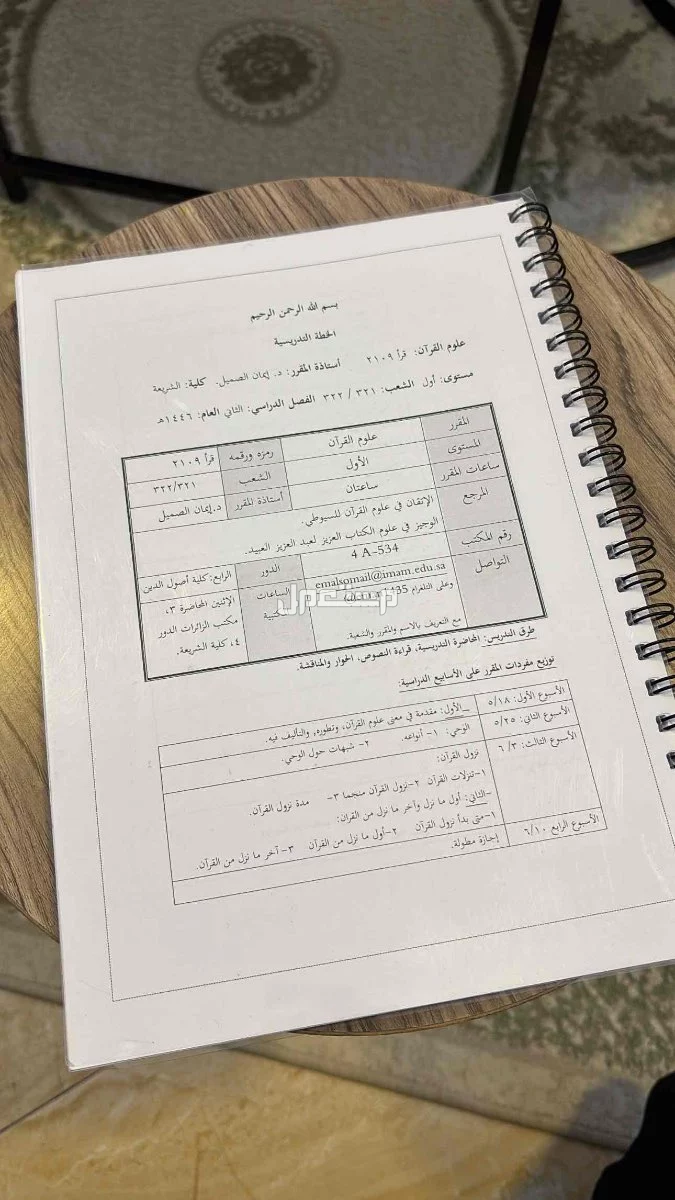 بسم الله الرحمن الرحيم
الخطة التدريسية
علوم القرآن: قرأ ٢١٠٩ أستاذة المقرر: د. إيمان الصميل. كلية: الشريعة
مستوى: أول الشعب: ٣٢١ / ٣٢٢ الفصل الدراسي: الثاني العام: ١٤٤٦هـ
المقرر علوم القرآن رمزه ورقمه قرأ ٢١٠٩
المستوى الأول الشعب ٣٢٢/٣٢١
ساعات المقرر ساعتان أستاذة المقرر د.إيمان الصميل
المرجع الإتقان في علوم القرآن للسيوطي.
الوجيز في علوم الكتاب العزيز لعبد العزيز العبيد.
رقم المكتب 4 A-534 الدور الرابع: كلية أصول الدين
التواصل emalsomail@imam.edu.sa
وعلى التلغرام
مع التعريف بالاسم والمقرر والشعبة.
الإثنين المحاضرة ٣،
مكتب الزائرات الدور
٤، كلية الشريعة.
مستعمل
طرق التدريس: المحاضرة التدريسية، قراءة النصوص، الحوار والمناقشة.
توزيع مفردات المقرر على الأسابيع الدراسية:
الأسبوع الأول: ٥/١٨ _الأول: مقدمة في معنى علوم القرآن، وتطوره، والتأليف فيه.
الأسبوع الثاني: ٥/٢٥ الوحي: ١- أنواعه. ٢- شبهات حول الوحي.
الأسبوع الثالث: ٦/٣ نزول القرآن:
١-تنزلات القرآن ٢-نزول القرآن منجما ٣- مدة نزول القرآن.
-الثاني: أول ما نزل وآخر ما نزل من القرآن:
١-متى بدأ نزول القرآن ٢-أول ما نزل من القرآن ٣- آخر ما نزل من القرآن.
الأسبوع الرابع ٦/١٠ إجازة مطولة.